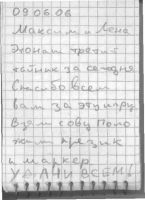 09.06.06
Максим и Лена
Это наш третий
тайник за сегодня
Спасибо всем
вам за эту игру
Взяли сову Поло
жили презик
и маркер
УДАЧИ ВСЕМ!